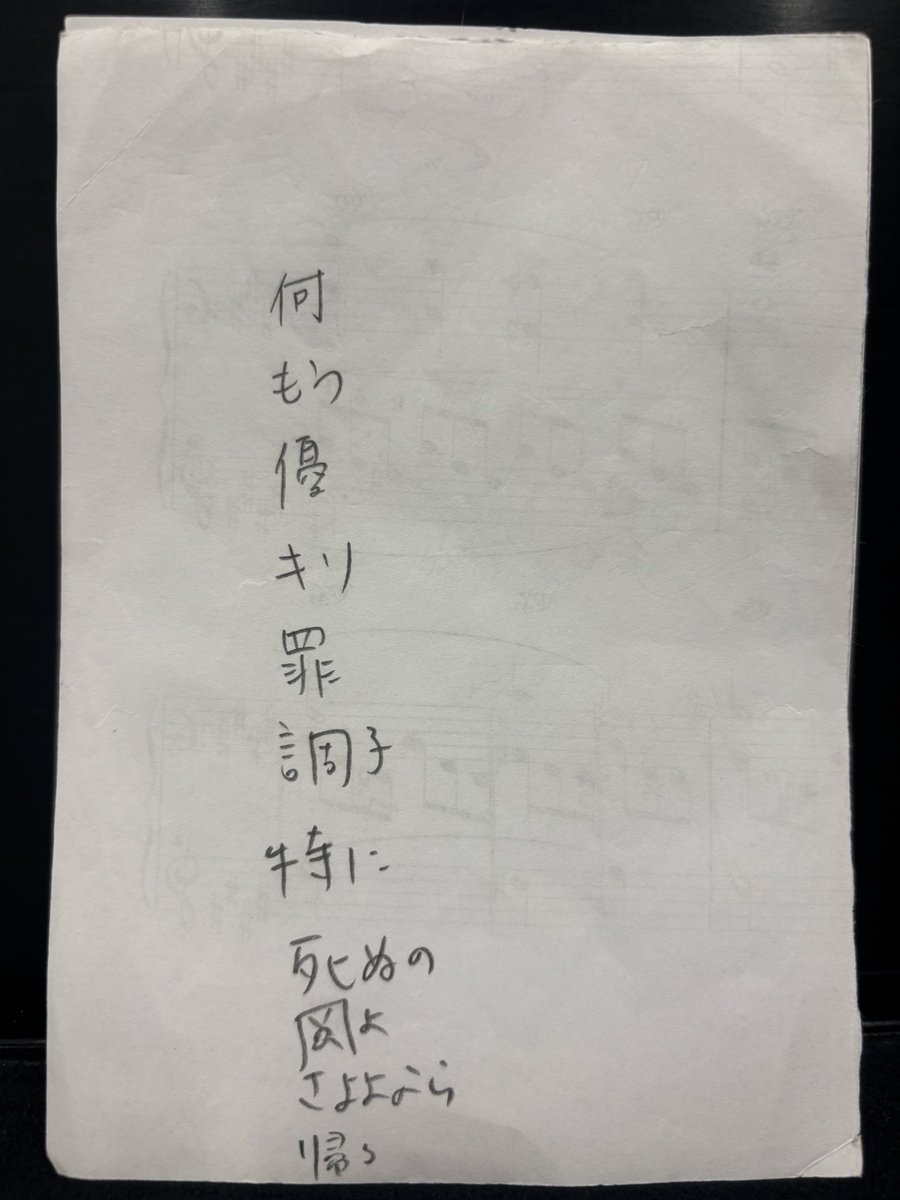 何
もう
優
キリ
罪
調子
特に
死ぬの
図よ
さよよなら
帰る